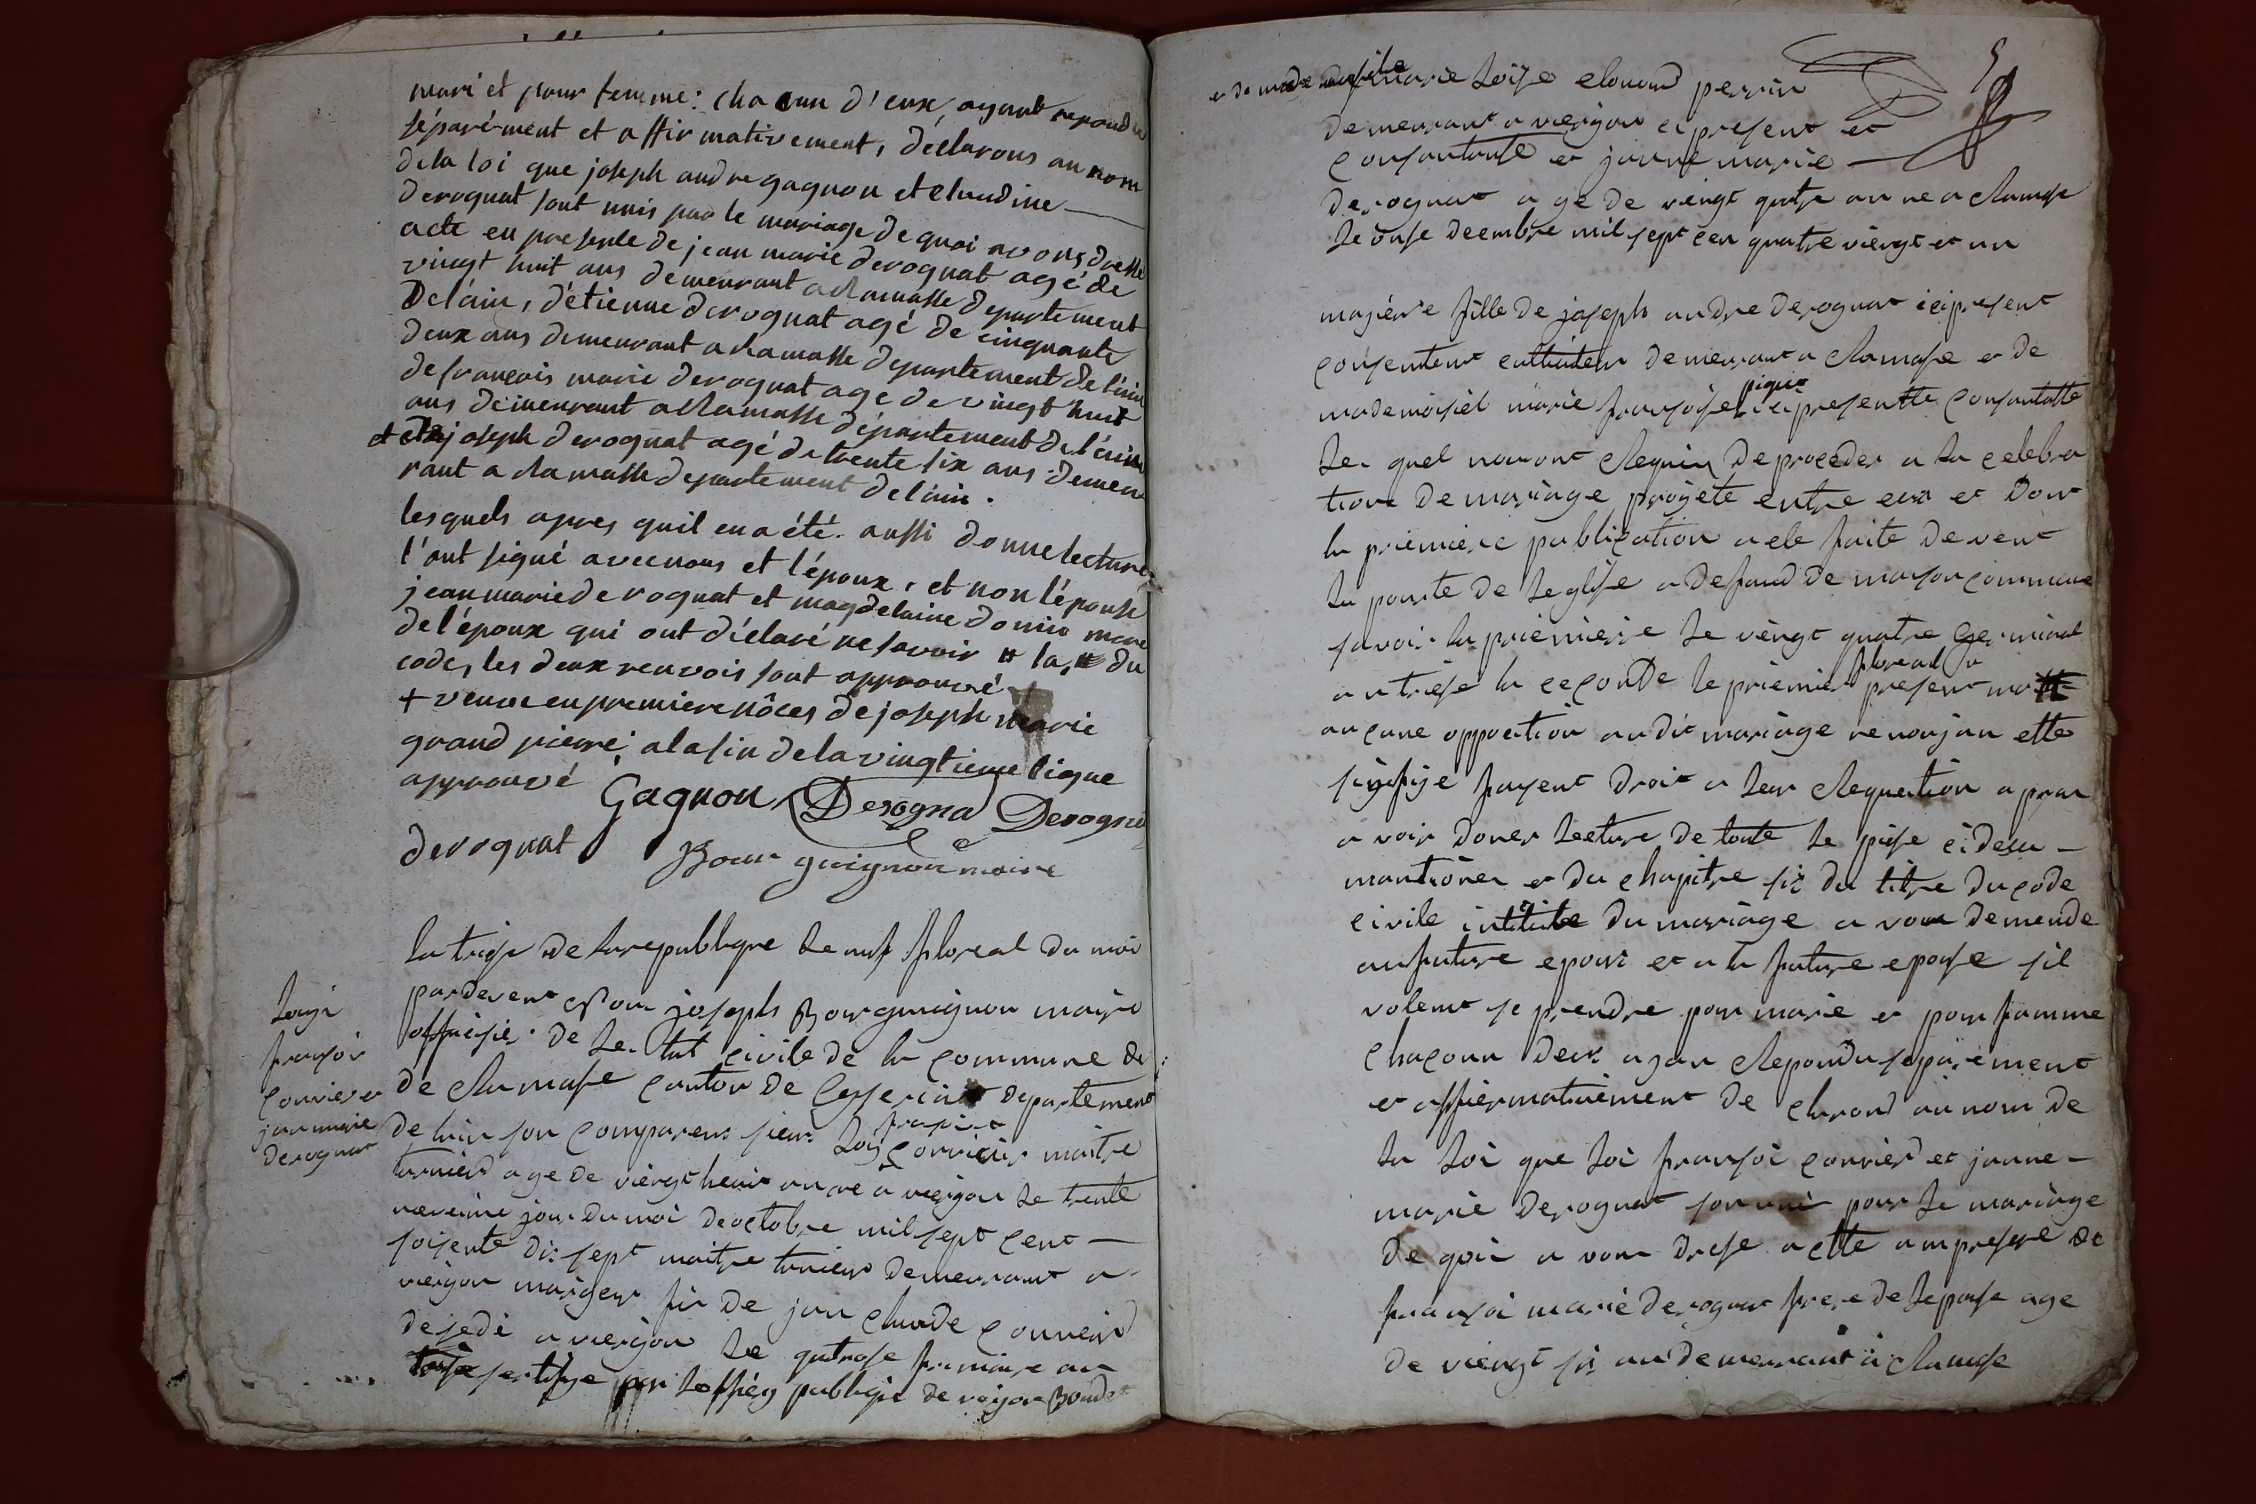 mari et pour femme: chacun d'eux, ayant repondu
séparément et affirmativement, déclarons au nom
de la loi que joseph andre gagnon et claudine
derognat sont unis par le mariage de quoi avons dressé
acte en presence de jean marie derognat agé de
vingt huit ans demeurant a chamasse departement
de l'ain, d'étienne derognat agé de cinquante
deux ans demeurant a chamasse departement de l'ain
de françois marie derognat age de vingt huit
ans demeurant a chamasse département de l'ain
et de joseph derognat agé de trente six ans demeu
rant a chamasse departement de l'ain.
lesquels apres quil en a été aussi donne lecture
l'ont signé avec nous et l'époux, et non l'épouse
jean marie derognat et magdelaine mere
de l'époux qui ont déclaré ne savoir # la # du
code, les deux renvois sont approuvé
+ veuve en premiere nôces de joseph marie
grand pierre; a la fin de la vingtieme ligne
approuvé Gagnon Derogna Derogna
derognat Bourguignon maire
La trese de la republique le nuf floreal du moi
par devent nou joseph Bourguignon maire
offisie de le tat civile de la commune de
de Chamase canton de Ceyseria departement
de lain son comparens sieur Loij fransoi Couvier maitre
turnier age de viengt heuit an ne a viejon le trente
uneieme jour du moi de octobre mil sept cent
soisente dis sept maitre turnier demeurant a
viejon majeur fis de jan claude Couvier
desede a viejon le quatrose frimaire an
sertifye par le offisieg publique de voijon Bondet
Loiji
fransoi
Couvier et
jan marie
derognat
5
et de mademoisele marie Loise elouard perrin
demeurant a viesjon ci present et
consantante et janne marie
derognat age de viengt quatre an ne a Chamase
le onse decembre mil sept cen quatre viengt et un
majeure fille de joseph andre derognat ici present
consentent cultivateur demeurant a Chamase et de
mademoisel marie fransoise piquet ici presentte consantatte
les quel nou ont Requis de proceder a la celebra
tion de mariage projete entre eux et dont
la priemiere publication a ete faite devent
la pourte de leglise a defaud de maison commune
savoir la priemiere le viengt quatre germinal
an trese la ceconde le priemier floreal present moi
aucune oppoction au dit mariage ne nou jan ette
sinifije fayent droit a leur Requetion a prai
a voir doner lecture de toute le piese ci desu
mantioner et du chapitre sis du titre du code
civile intitule du mariage a vou demende
au future epoux et a la future epouse sil
volent se prendre pour marie et pour famme
chacoun deux ayan Repondu separement
et affiermativement de clarond au nom de
la loi que Loi fransoi couvier et janne
marie derognat son uni pour le mariage
de quoi a vour drese actte an presense de
fransoi marie derognat frere de lepouse age
de viengt sis an demeurant a Chamase